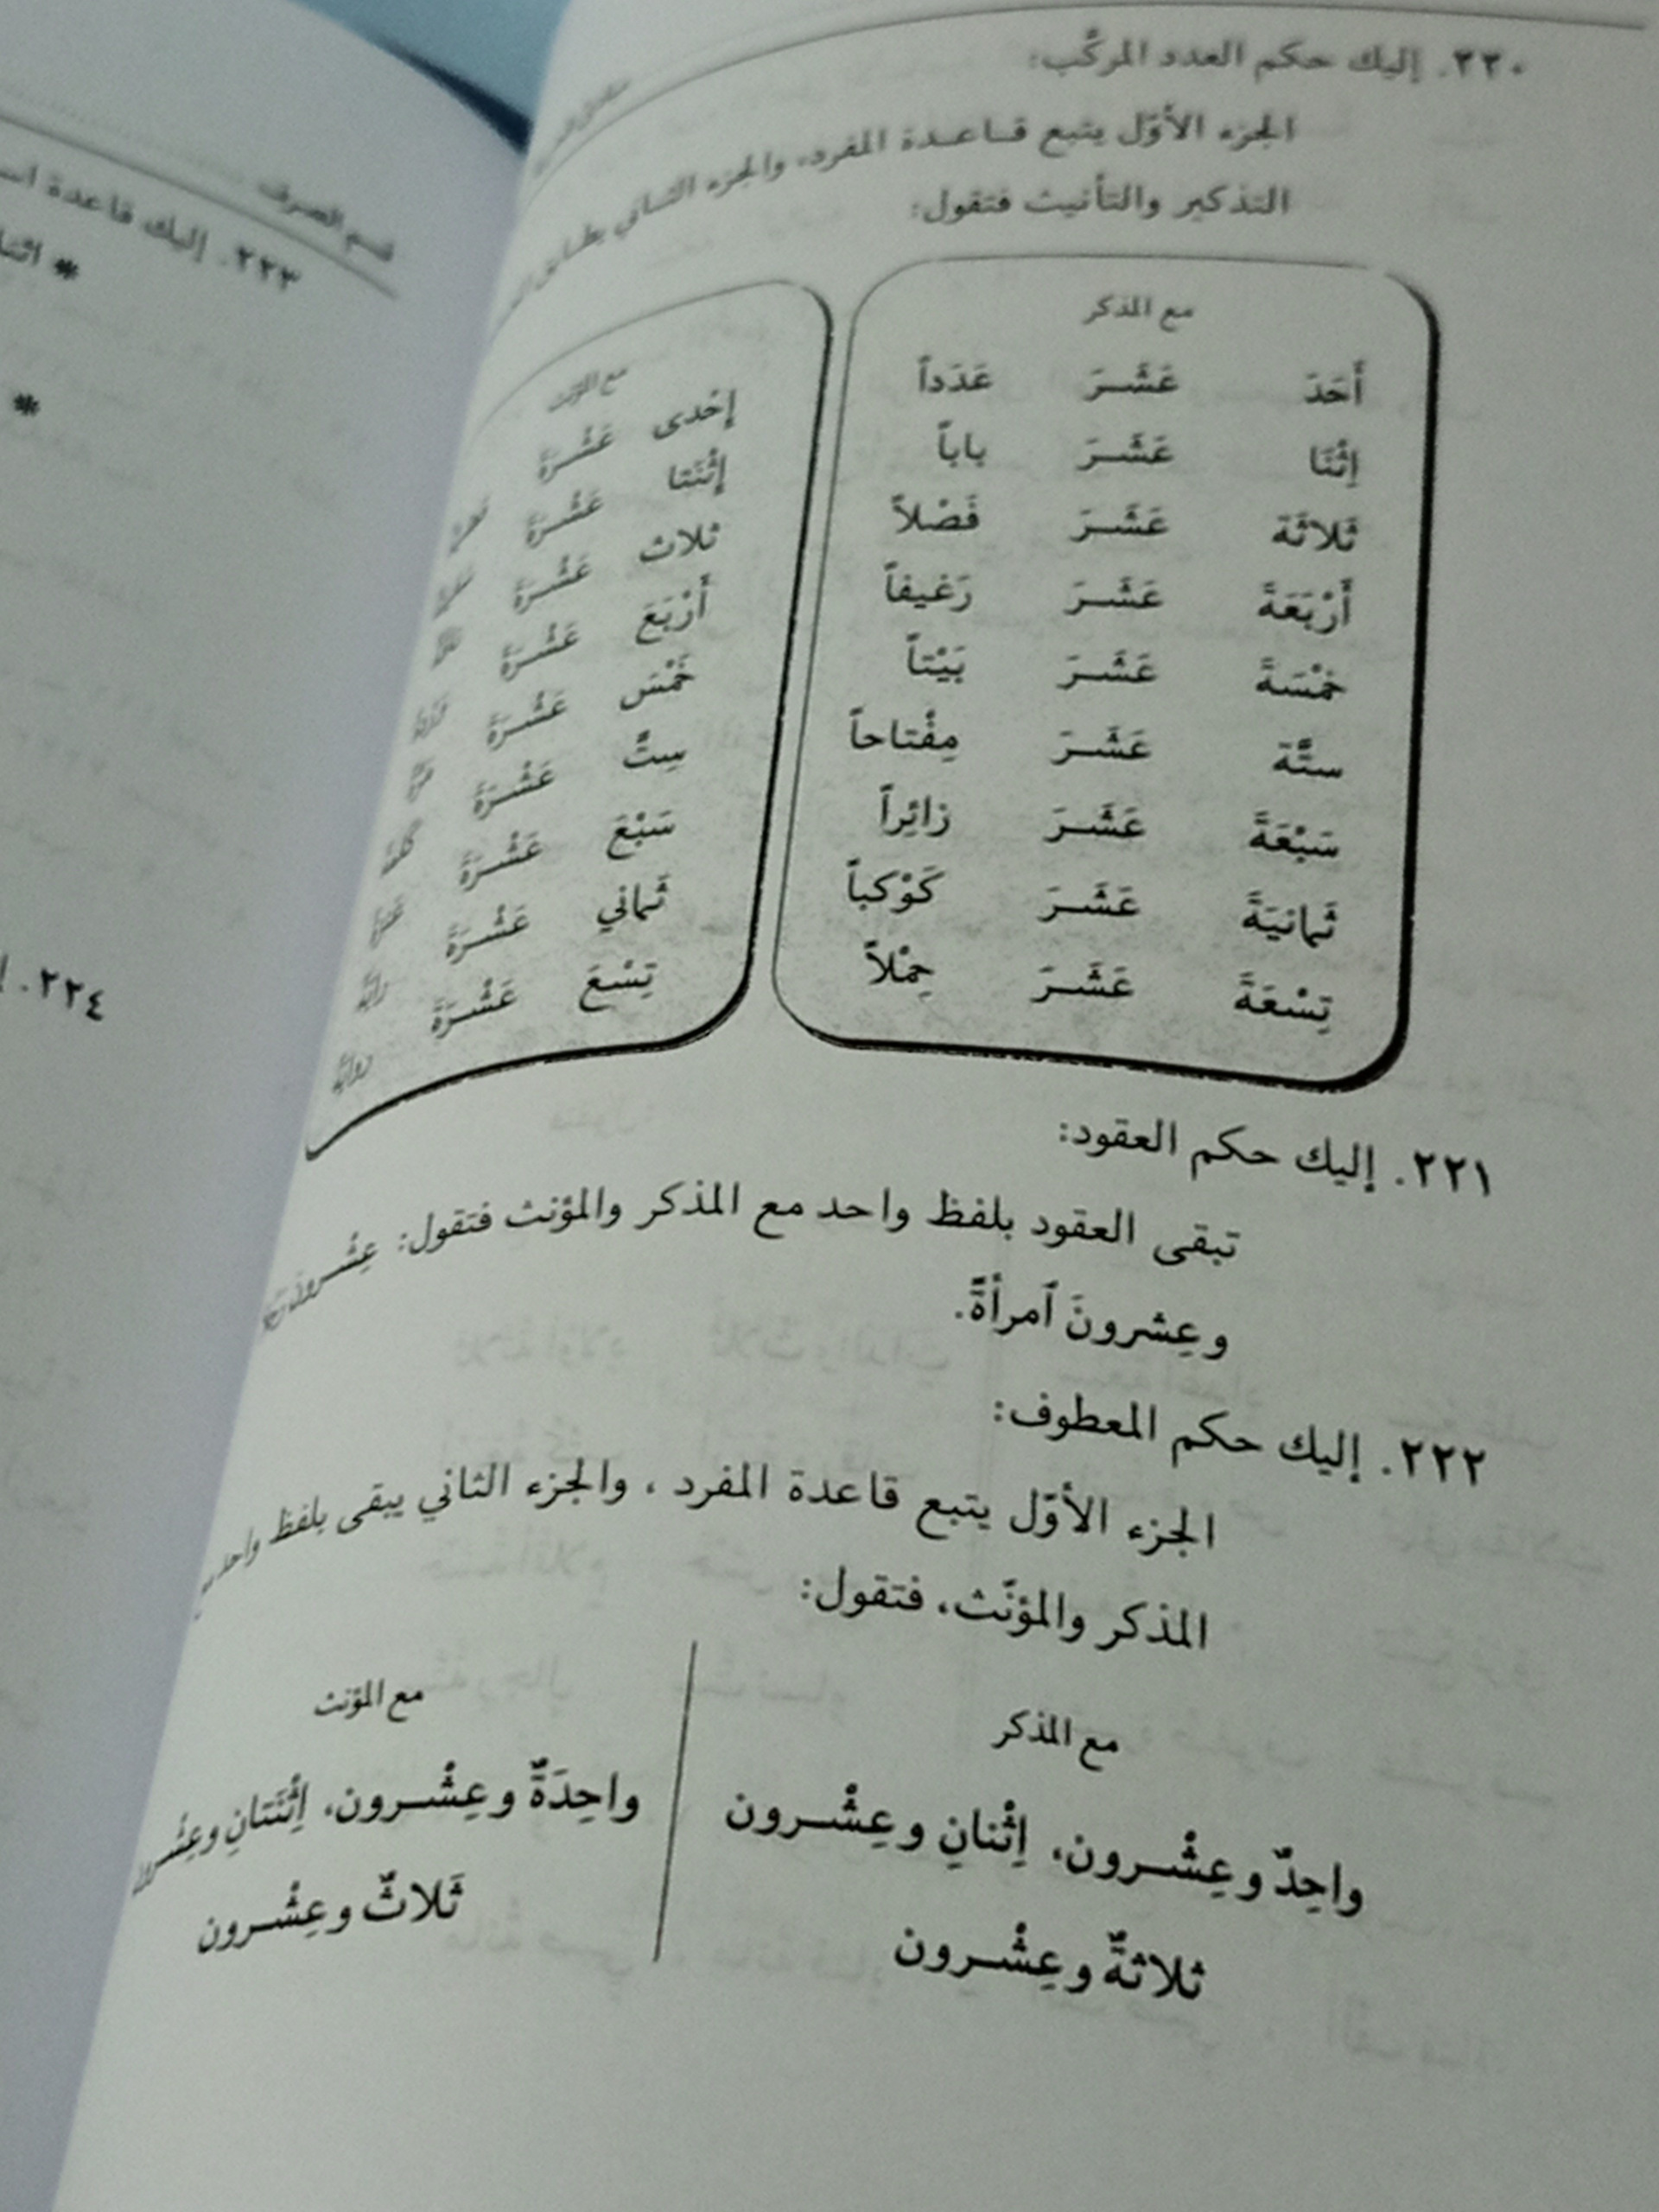 ٢٢٠. إليك حكم العدد المركّب:
الجزء الأوّل يتبع قاعدة المفرد، والجزء الثاني يطابق
التذكير والتأنيث فتقول:
مع المذكر
أَحَدَ عَشَرَ عَدَداً
إثْنَا عَشَرَ باباً
ثَلاثَةَ عَشَرَ فَصْلاً
أَرْبَعَةَ عَشَرَ رَغيفاً
خَمْسَةَ عَشَرَ بَيْتاً
ستَّةَ عَشَرَ مِفْتاحاً
سَبْعَةَ عَشَرَ زائِراً
ثَمانيَةَ عَشَرَ كَوْكباً
تِسْعَةَ عَشَرَ حِمْلاً
مع المؤنث
إحْدى عَشْرَةَ
إثْنَتا عَشْرَةَ
ثلاث عَشْرَةَ
أَرْبَعَ عَشْرَةَ
خَمْسَ عَشْرَةَ
سِتَّ عَشْرَةَ
سَبْعَ عَشْرَةَ
ثَماني عَشْرَةَ
تِسْعَ عَشْرَةَ
روايةً
٢٢١. إليك حكم العقود:
تبقى العقود بلفظ واحد مع المذكر والمؤنث فتقول: عِشْرونَ
وعِشرونَ ٱمرأةً.
٢٢٢. إليك حكم المعطوف:
الجزء الأوّل يتبع قاعدة المفرد ، والجزء الثاني يبقى بلفظ واحد
المذكر والمؤنّث، فتقول:
مع المذكر
واحِدٌ وعِشْرون، إثْنانِ وعِشْرون
ثلاثةٌ وعِشْرون
مع المؤنث
واحِدَةٌ وعِشْرون، إثْنَتانِ وعِشْرون
ثَلاثٌ وعِشْرون
قسم الصرف
٢٢٣. إليك قاعدة
*
*
٢٢٤.